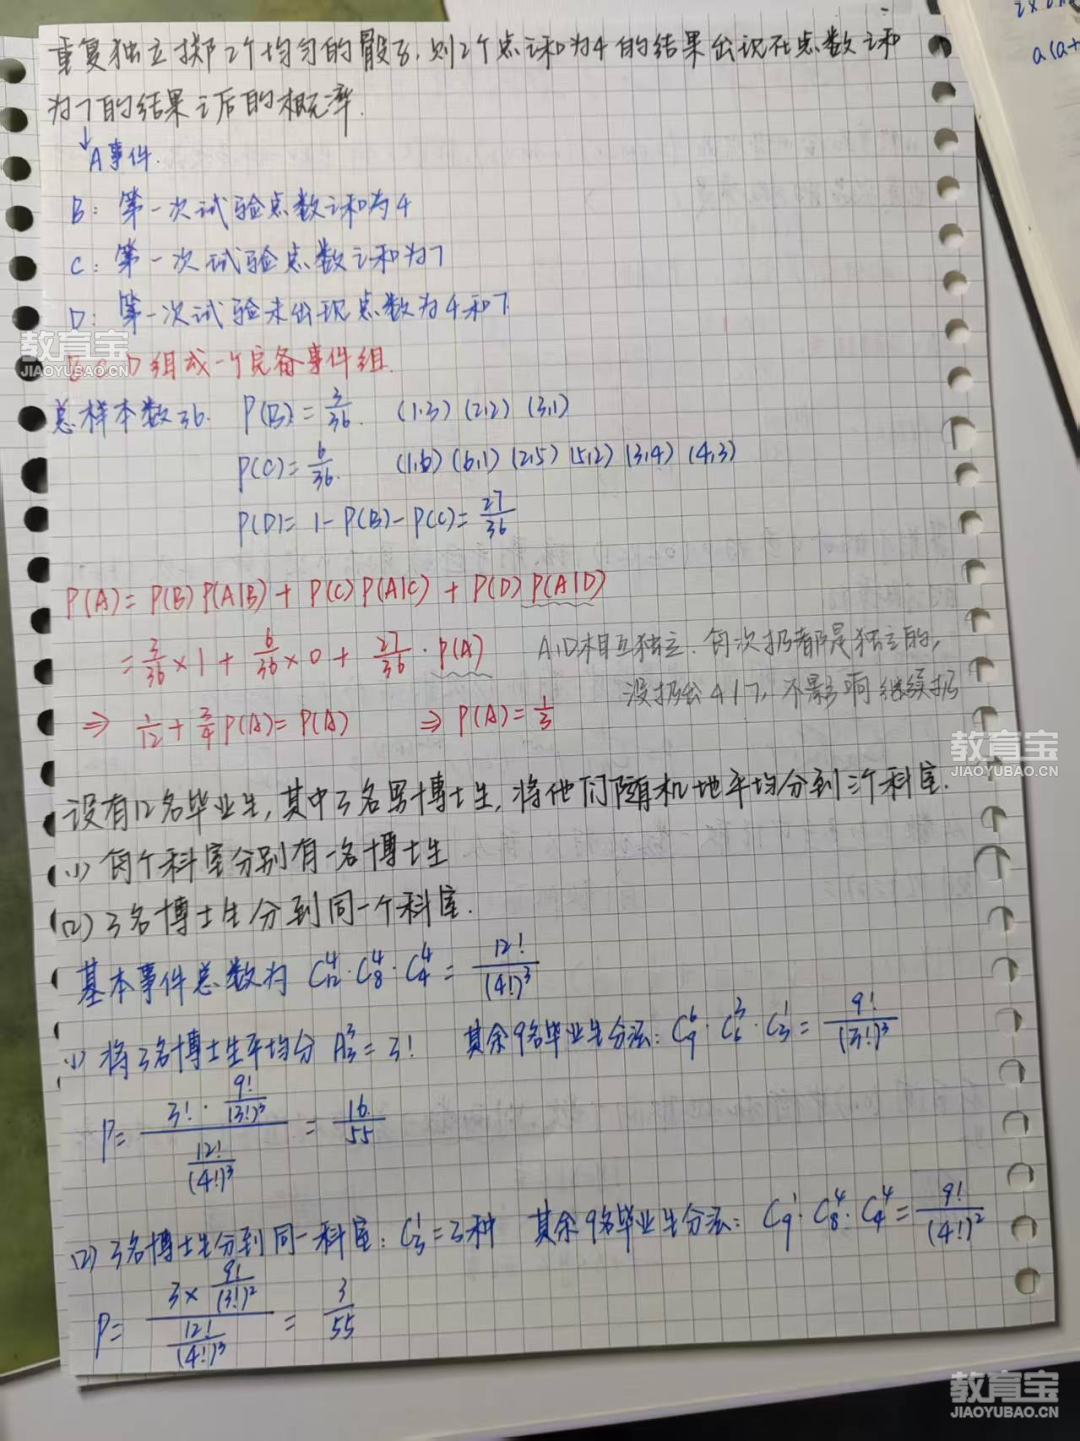 重复独立掷2个均匀的骰子,则2个点之和为4的结果出现在点数之和
为7的结果之后的概率.
↓A事件.
B: 第一次试验点数之和为4
C: 第一次试验点数之和为7
D: 第一次试验未出现点数为4和7
B C D组成一个完备事件组.
总样本数36. P(B)=3/36. (1,3) (2,2) (3,1)
P(C)=6/36. (1,6) (6,1) (2,5) (5,2) (3,4) (4,3)
P(D)=1-P(B)-P(C)=27/36
P(A)=P(B)P(A|B)+P(C)P(A|C)+P(D)P(A|D)
=3/36×1+6/36×0+27/36·P(A) A,D相互独立.每次扔都是独立的,
没扔出4/7,不影响继续扔
⇒ 1/12+3/4P(A)=P(A) ⇒P(A)=1/3
设有12名毕业生,其中3名男博士生,将他们随机地平均分到三个科室.
(1) 每个科室分别有一名博士生
(2) 3名博士生分到同一个科室.
基本事件总数为 C₁₂⁴·C₈⁴·C₄⁴=12!/(4!)³
(1) 将3名博士生平均分 A₃³=3! 其余9名毕业生分法: C₉⁶·C₆³·C₃¹=9!/(3!)³
P=(3!·9!/(3!)³)/(12!/(4!)³)=16/55
(2) 3名博士生分到同一科室: C₃¹=3种 其余9名毕业生分法: C₉¹·C₈⁴·C₄⁴=9!/(4!)²
P=(3×9!/(3!)²)/(12!/(4!)³)=3/55
教育宝
JIAOYUBAO.CN
教育宝
JIAOYUBAO.CN
教育宝
JIAOYUBAO.CN